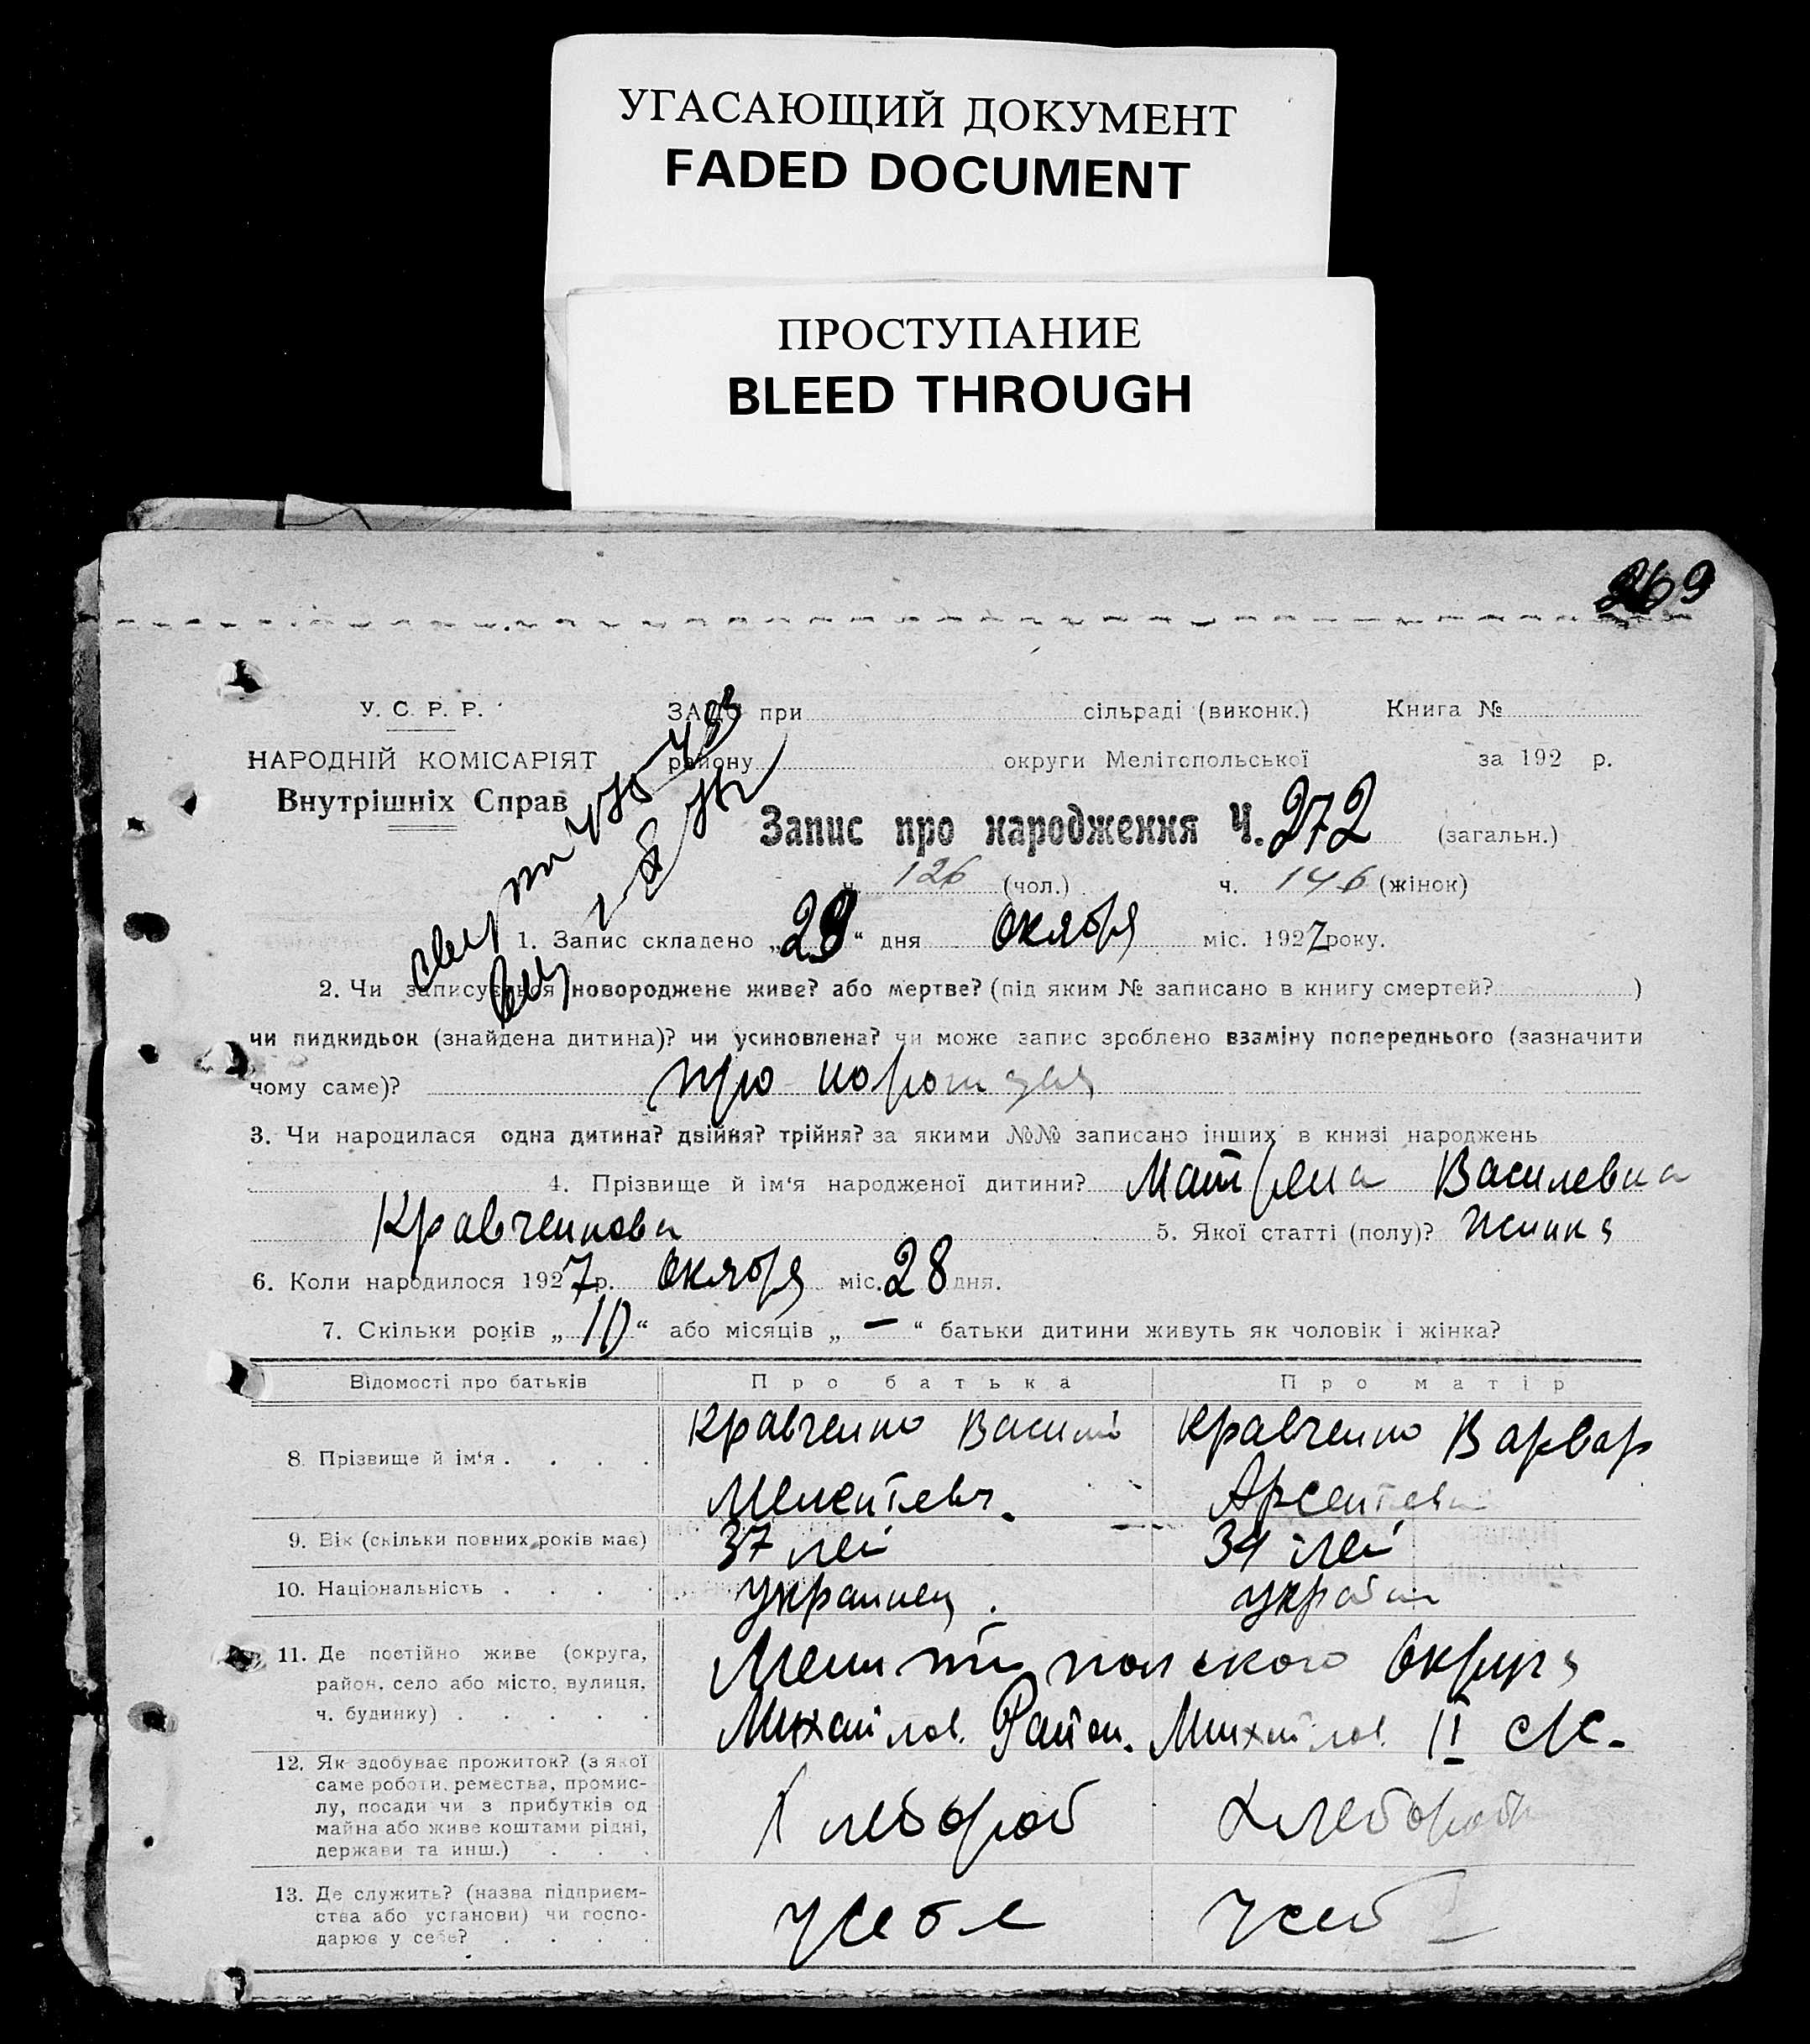 УГАСАЮЩИЙ ДОКУМЕНТ
FADED DOCUMENT
ПРОСТУПАНИЕ
BLEED THROUGH
269
У. С. Р. Р.
ЗАЦС при сільраді (виконк.) Книга №
НАРОДНІЙ КОМІСАРІЯТ
району округи Мелітопольської за 192 р.
Внутрішніх Справ
Запис про народження Ч. 272 (загальн.)
ч. 126 (чол.) ч. 146 (жінок)
1. Запис складено „29“ дня октября міс. 1927 року.
2. Чи записується новороджене живе? або мертве? (під яким № записано в книгу смертей? )
чи пидкидьок (знайдена дитина)? чи усиновлена? чи може запис зроблено взаміну попереднього (зазначити
чому саме)? про
3. Чи народилася одна дитина? двійня? трійня? за якими №№ записано інших в книзі народжень
4. Прізвище й ім‘я народженої дитини? Матрена Василевна
Кравченкова 5. Якої статті (полу)?
6. Коли народилося 1927 р. октября міс. 28 дня.
7. Скільки років „10“ або місяців „—“ батьки дитини живуть як чоловік і жінка?
Відомості про батьків Про батька Про матір
8. Прізвище й ім‘я . . . . Кравченко Василий Кравченко Варвар
Арсентевн
9. Вік (скільки повних років має) 37 лет 34 лет
10. Національність . . . . Украинец. украин
11. Де постійно живе (округа, район, село або місто, вулиця, ч. будинку) . . . . .
Мелитопольского округа
Михайлов. Район. Михайлов. II
12. Як здобуває прожиток? (з якої
саме роботи, ремества, промис-
лу, посади чи з прибутків од
майна або живе коштами рідні,
держави та инш.) . . .
Хлебороб Хлебороб
13. Де служить? (назва підприєм-
ства або установи) чи госпо-
дарює у себе? . . . .
у себе у себ